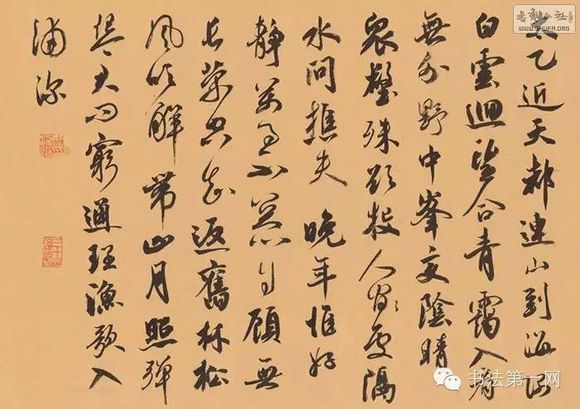 太乙近天都連山到海隅
白雲迴望合青靄入看
無分野中峯變陰晴
眾壑殊欲投人處宿隔
水問樵夫 晚年惟好
靜萬事不關心自顧無
長策空知返舊林松
風吹解帶山月照彈
琴君問窮通理漁歌入
浦深
WWW.SHUFA.ORG
书法第一网